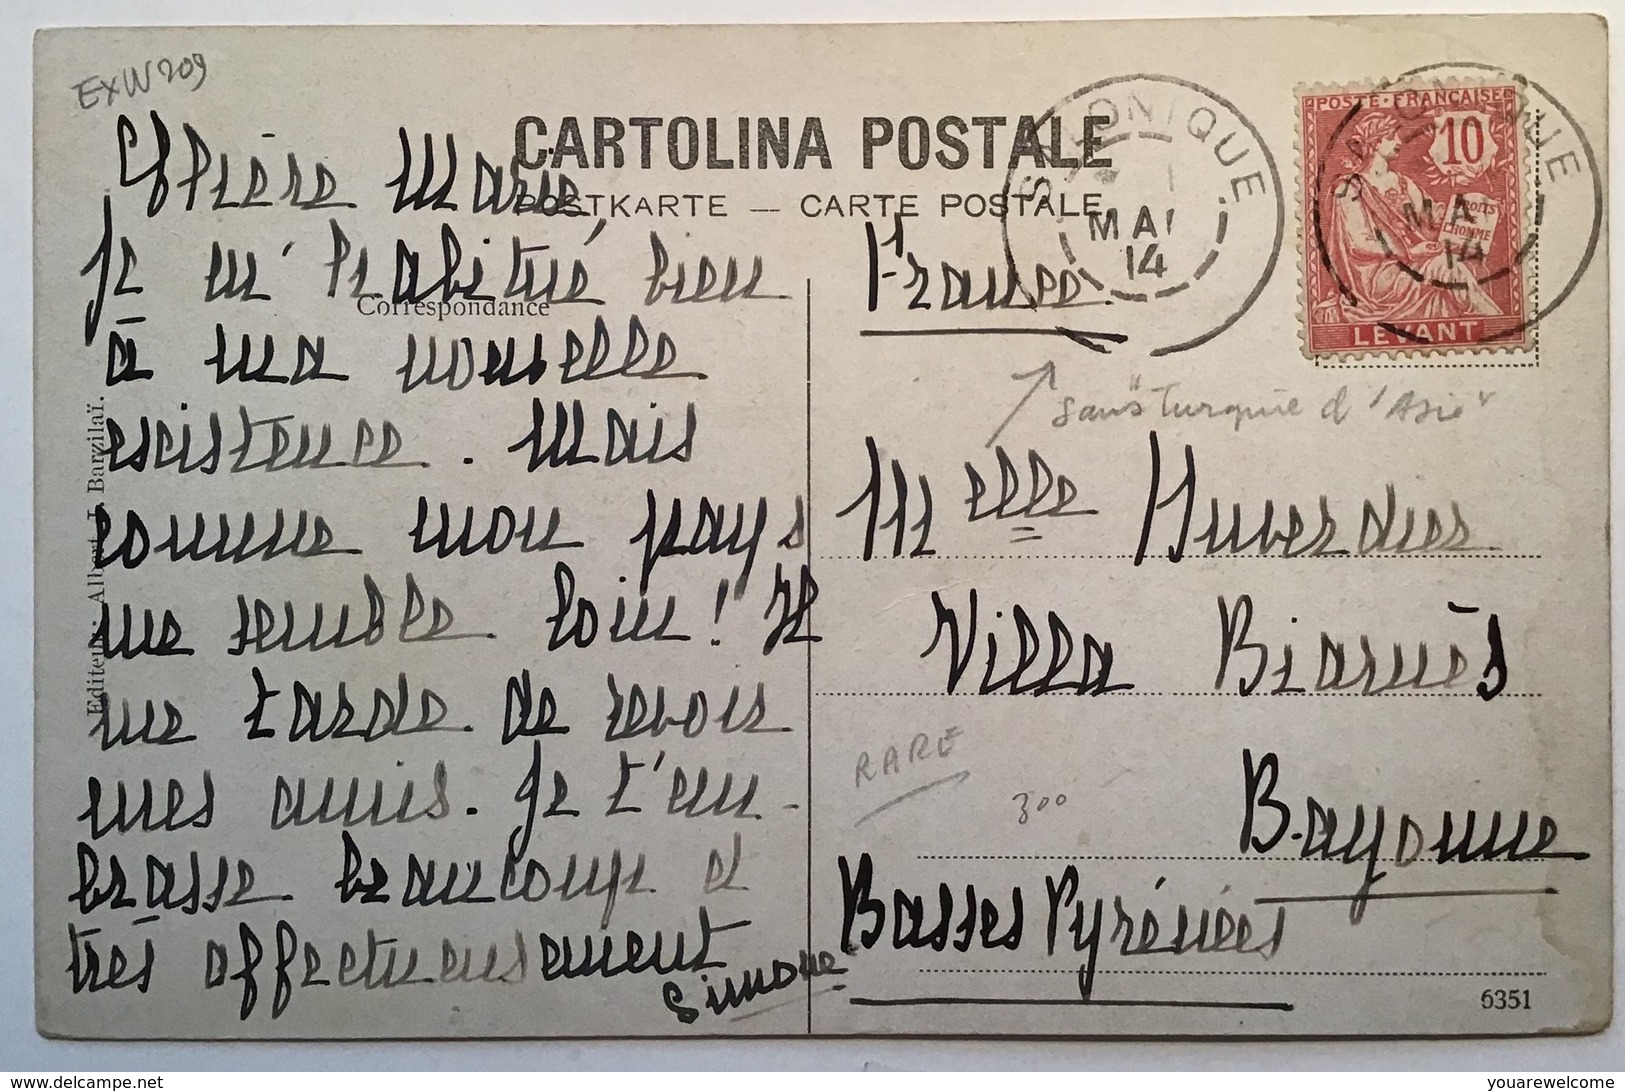 ExW 209
CARTOLINA POSTALE
POSTKARTE — CARTE POSTALE
Correspondance
Editeur: Albert J. Barzilaï.
Chère Marie
Je m'habitue bien
à ma nouvelle
existence. Mais
comme mon pays
me semble loin! Il
me tarde de revoir
mes amis. Je t'em-
brasse beaucoup et
très affectueusement
Simone
SALONIQUE
MAI
14
POSTE FRANÇAISE
10
DROITS
L'HOMME
LEVANT
SALONIQUE
MAI
14
France
sans "Turquie d'Asie"
Melle Huverdier
Villa Biarnès
Bayonne
Basses Pyrénées
RARE
300
6351
delcampe.net
youarewelcome